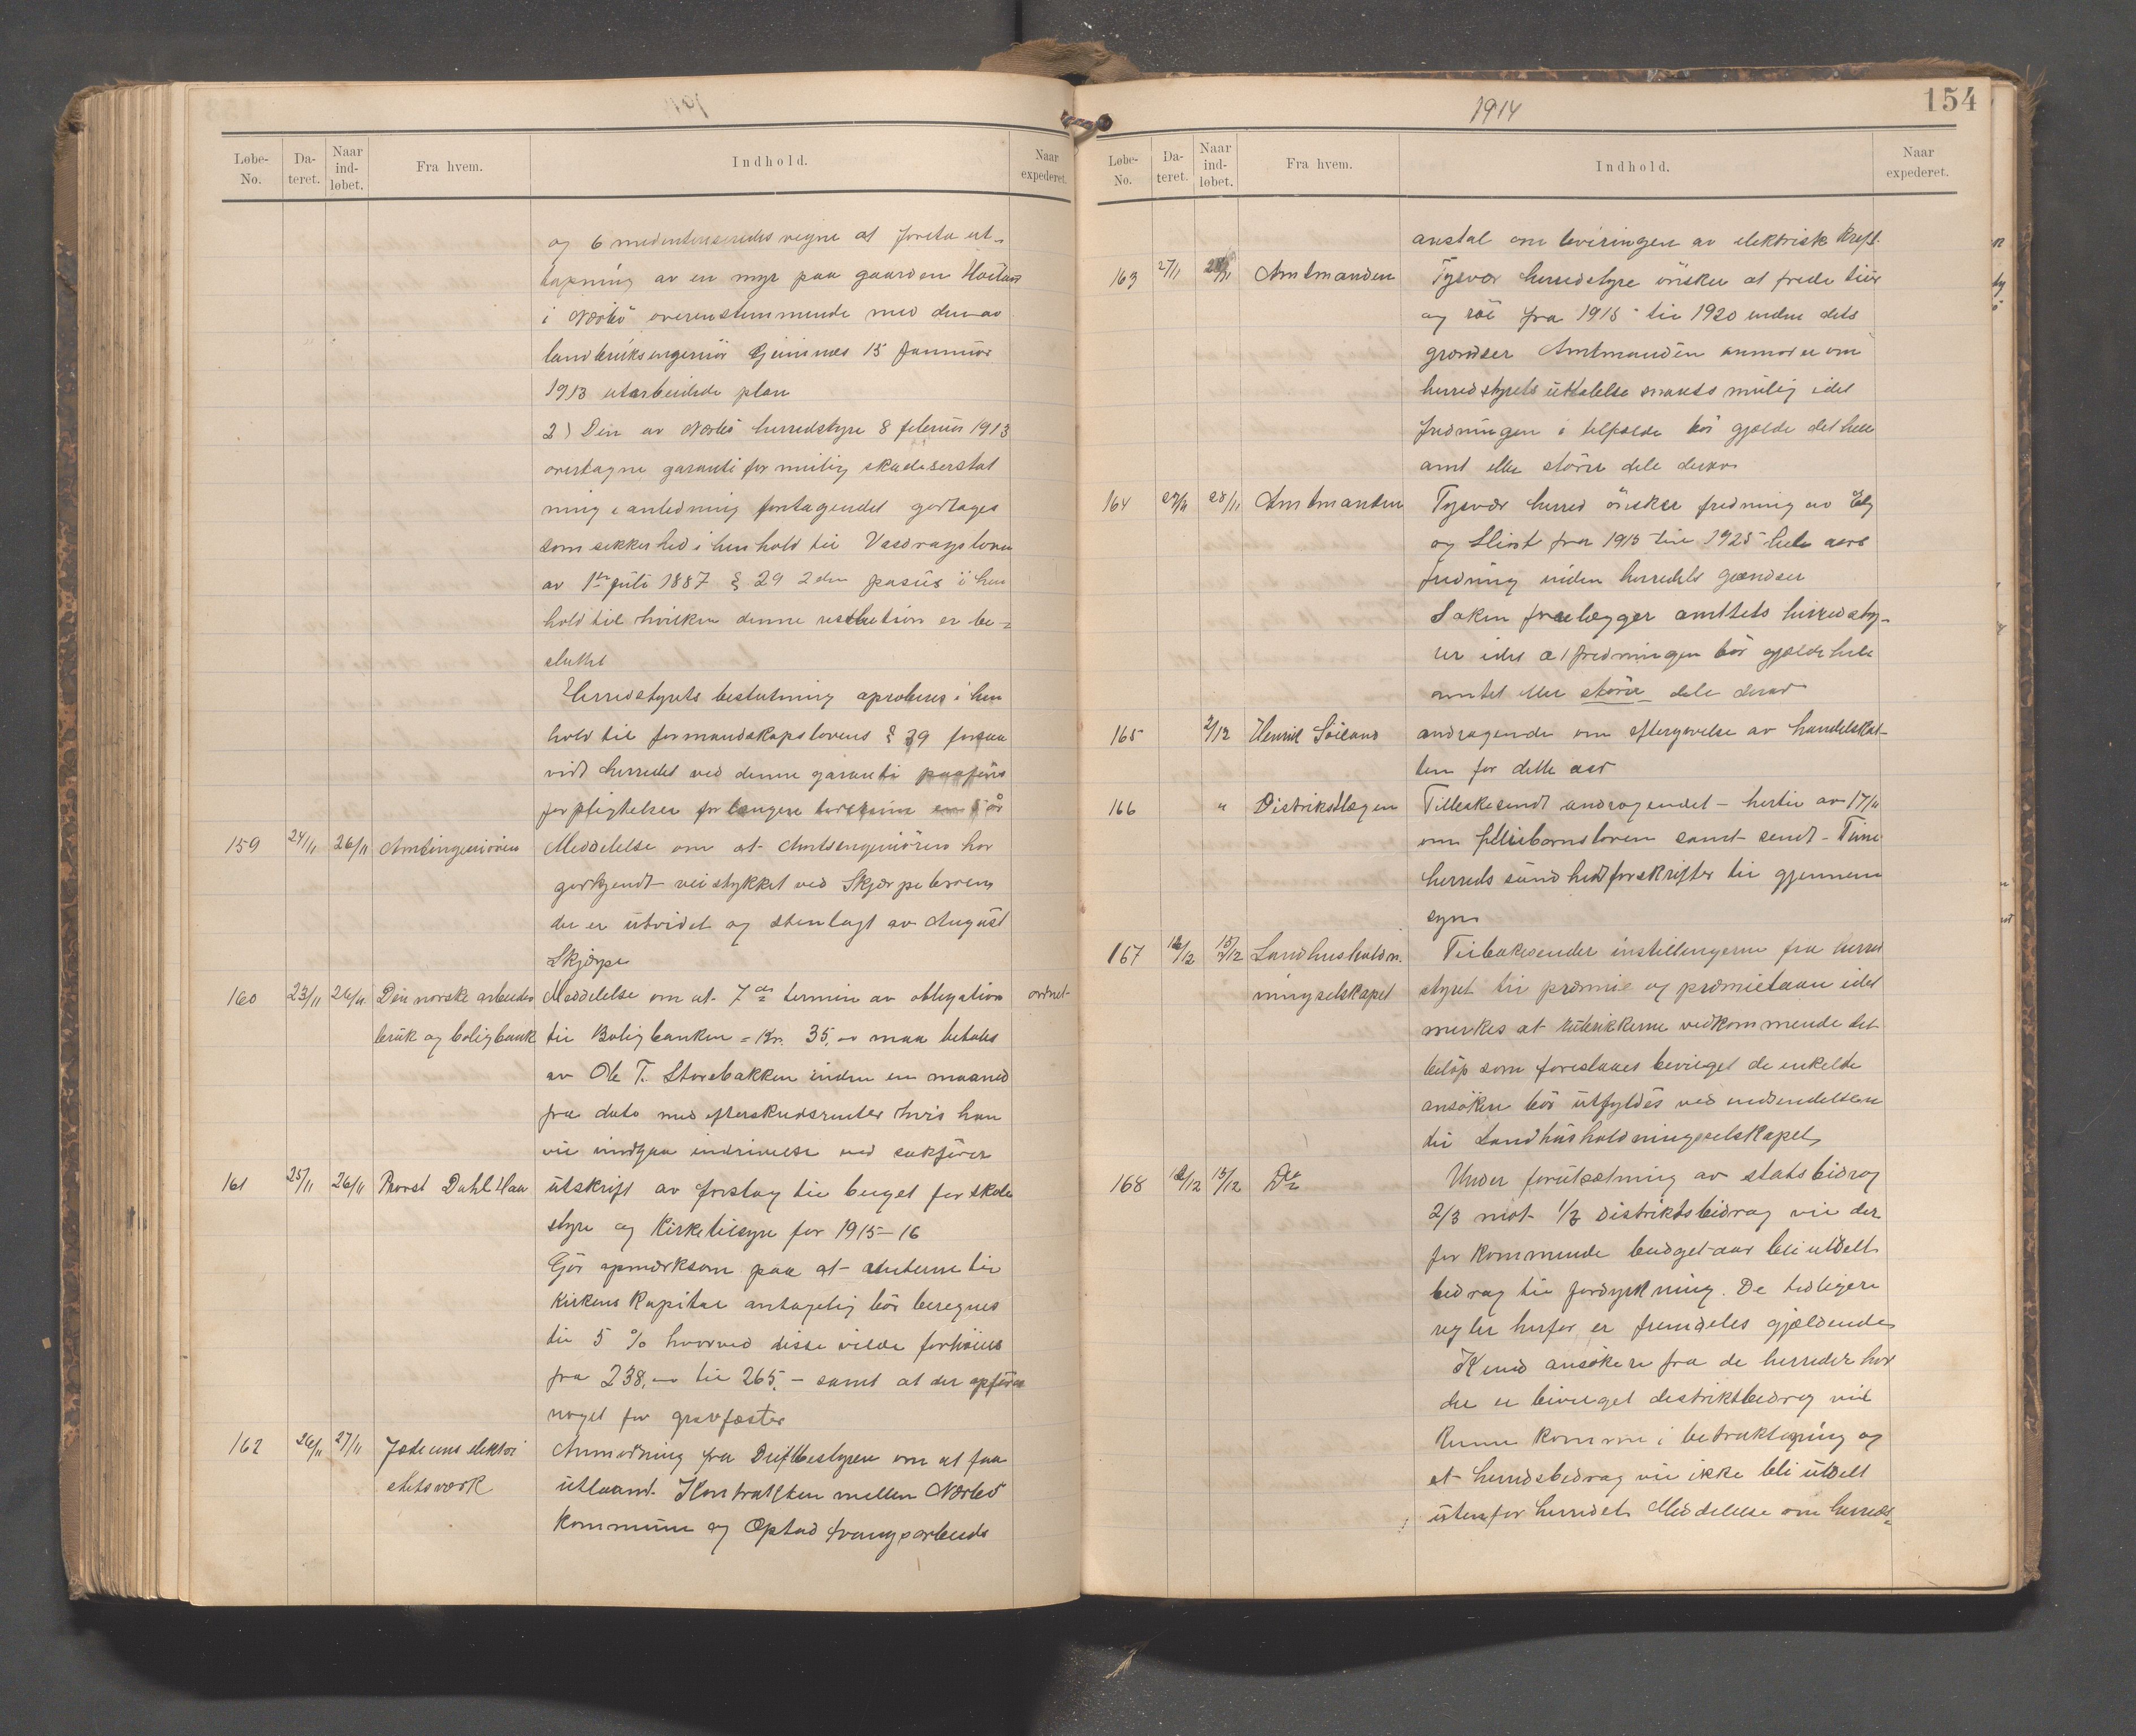 Løbe-No. Da-teret. Naar ind-løbet. Fra hvem. Indhold. Naar expederet.
og 6 medinteresseredes vegne at foreta ut-
tapning av en myr paa gaarden Høiland
i Nærbö overensstemmende med den av
landbruksingeniör 15 Januar
1913 utarbeidede plan
2) Den av Nærbö herredstyre 8 februar 1913
overtagne garanti for mulig skadeserstat
ning i anledning foretagendet godtages
som sikkerhed i henhold til Vasdragsloven
av 1ste juli 1887 § 29 2den pasüs i hen
hold til hvilken denne resolution er be-
sluttet
Herredstyrets beslutning aproberes i hen
hold til formandskapslovens § 39 forsaa
vidt herredet ved denne garanti paaföres
forpligtelser for længere tidsrum end 5 år
159 24/11 26/11 Amtsingeniören Meddelelse om at Amtsengeniören har
godkjendt veistykket ved Skjærpebroen
der er utvidet og stenlagt av August
Skjærpe
160 23/11 26/11 Den norske arbeider Meddelelse om at 7de termin av obligation ordnet
bruk og boligbank til Boligbanken = Kr. 35,00 maa betales
av Ole T. Storebakken inden en maaned
fra dato med efterskudsrenter hvis han
vil undgaa indrivelse ved sakförer
161 25/11 26/11 Provst Dahl Haa utskrift av forslag til buget for skole
styre og Kirketilsyn for 1915-16
Gjör opmærksom paa at renterne til
Kirkens Kapital antagelig bör beregnes
til 5 % hvorved disse vilde forhöies
fra 238,00 til 265,- samt at der opföres
noget for gravfæster
162 26/11 27/11 Jæderens elektri Anmodning fra Driftbestyren om at faa
citetsværk utlaant Kontrakten mellem Nærbö
Kommune og Opstad tvangsarbeids
1914
154
Løbe-No. Da-teret. Naar ind-løbet. Fra hvem. Indhold. Naar expederet.
anstal om leveringen av elektrisk Kraft.
163 27/11 28/11 Amtmanden Tysvær herredstyre önsker at frede tiur
og röi fra 1915 til 1920 inden dets
grændser Amtmanden anmoder om
herredstyrets uttalelse snarest mulig idet
fredningen i tilfælde bör gjælde det hele
amt eller större dele derav
164 27/11 28/11 Amtmanden Tysvær herred önsker fredning av Elg
og Hiort fra 1915 til 1925 hele aars
fredning inden herredets grændser
Saken forelægger amtets herredsty-
rer idet at fredningen bör gjælde hele
amtet eller större dele derav
165 2/12 Henrik Söiland andragende om eftergivelse av handelskat-
ten for dette aar
166 " Distriktslægen Tilbakesendt andragendet hertil av 17/11
om pleiebarnsloven samt sendt Time
herreds sundhedforskrifter til gjennem
syn
167 12/12 15/12 Landhusholdn. Tilbakesender instillingerne fra herred
ningselskapet styret til præmie og præmielaan idet
merkes at rubrikkerne vedkommende det
belöp som foreslaaes bevilget de enkelte
ansökere bör utfyldes ved indsendelsen
til Landhusholdningsselskapet
168 12/12 15/12 Do Under forutsætning av statsbidrag
2/3 mot 1/3 Distriktsbidrag vil der
for kommende budget-aar bli utdelt
bidrag til jorddyrkning. De tidligere
regler herfor er fremdeles gjældende
Kund ansökere fra de herreder hvor
der er bevilget distriktbidrag vil
kunne komme i betraktning og
et herredsbidrag vil ikke bli utdelt
utenfor herredet. Meddelelse om herreds-